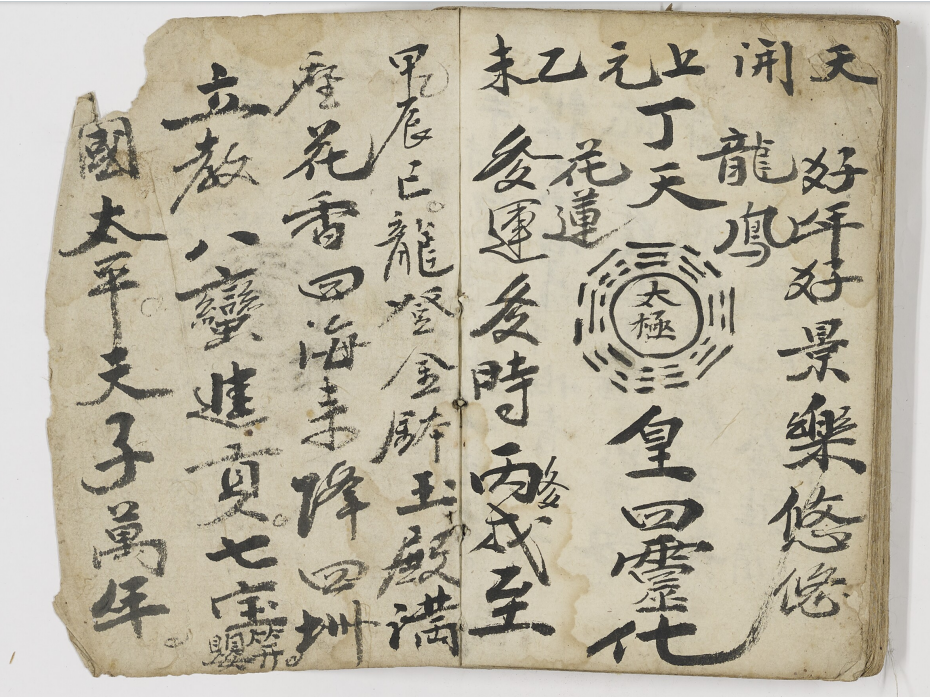 天開上元乙未
好年好景樂悠悠
龍鳳
丁天
太極
皇四靈化
花蓮
運 時丙戌至
甲辰巳龍登金缽玉殿滿
座花香四海來降四州
立教八蠻進貢七宝等
國太平天子萬年